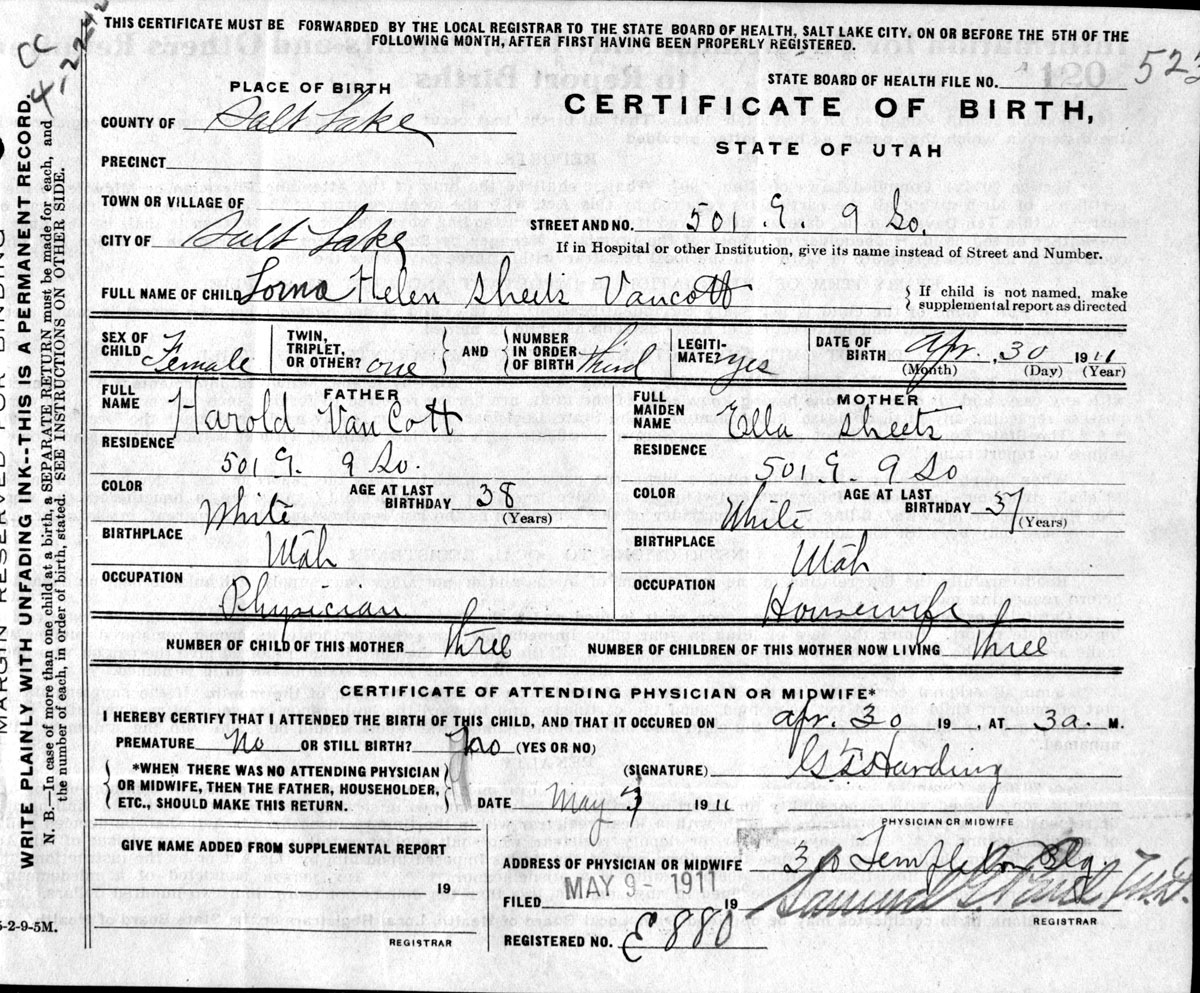 THIS CERTIFICATE MUST BE FORWARDED BY THE LOCAL REGISTRAR TO THE STATE BOARD OF HEALTH, SALT LAKE CITY. ON OR BEFORE THE 5TH OF THE
FOLLOWING MONTH, AFTER FIRST HAVING BEEN PROPERLY REGISTERED.
CC
4-22-42
MARGIN RESERVED FOR BINDING
WRITE PLAINLY WITH UNFADING INK--THIS IS A PERMANENT RECORD.
N. B.—In case of more than one child at a birth, a SEPARATE RETURN must be made for each, and
the number of each, in order of birth, stated. SEE INSTRUCTIONS ON OTHER SIDE.
STATE BOARD OF HEALTH FILE NO.
PLACE OF BIRTH
CERTIFICATE OF BIRTH,
STATE OF UTAH
COUNTY OF Salt Lake
PRECINCT
TOWN OR VILLAGE OF
STREET AND NO. 501 E. 9 So.
CITY OF Salt Lake
If in Hospital or other Institution, give its name instead of Street and Number.
FULL NAME OF CHILD Lorna Helen Sheets Vancott
If child is not named, make
supplemental report as directed
SEX OF CHILD Female TWIN, TRIPLET, OR OTHER? one AND NUMBER IN ORDER OF BIRTH third LEGITI-MATE? yes DATE OF BIRTH Apr. 30 1911
(Month) (Day) (Year)
FATHER
FULL NAME Harold Van Cott
RESIDENCE
501 E. 9 So.
COLOR White AGE AT LAST BIRTHDAY 38 (Years)
BIRTHPLACE
Utah
OCCUPATION
Physician
MOTHER
FULL MAIDEN NAME Ella Sheets
RESIDENCE
501 E 9 So
COLOR White AGE AT LAST BIRTHDAY 37 (Years)
BIRTHPLACE
Utah
OCCUPATION
Housewife
NUMBER OF CHILD OF THIS MOTHER three NUMBER OF CHILDREN OF THIS MOTHER NOW LIVING three
CERTIFICATE OF ATTENDING PHYSICIAN OR MIDWIFE*
I HEREBY CERTIFY THAT I ATTENDED THE BIRTH OF THIS CHILD, AND THAT IT OCCURED ON Apr. 30 19 AT 3 a. M.
PREMATURE No OR STILL BIRTH? No (YES OR NO)
*WHEN THERE WAS NO ATTENDING PHYSICIAN
OR MIDWIFE, THEN THE FATHER, HOUSEHOLDER,
ETC., SHOULD MAKE THIS RETURN.
(SIGNATURE) Harding
DATE May 7 1911
PHYSICIAN OR MIDWIFE
GIVE NAME ADDED FROM SUPPLEMENTAL REPORT
19
REGISTRAR
ADDRESS OF PHYSICIAN OR MIDWIFE Templeton Blg.
FILED MAY 9 - 1911 19
REGISTRAR
REGISTERED NO. E 880
5-2-9-5M.